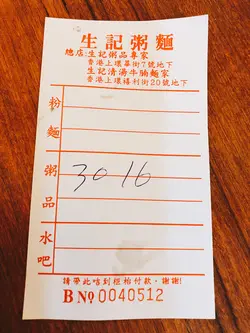 生記粥麵
總店:生記粥品專家
香港上環畢街7號地下
生記清湯牛腩麵家
香港上環禧利街20號地下
粉
麵
粥
3016
品
水
吧
請帶此咭到柜枱付款，謝謝!
B No 0040512